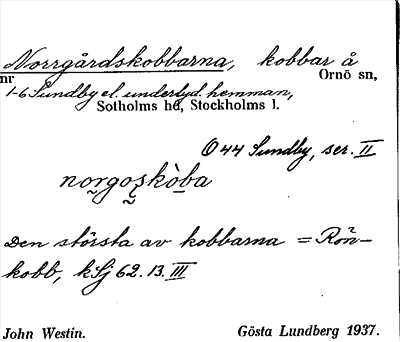 Norrgårdskobbarna, kobbar å
nr Ornö sn,
1-6 Sundby el. underlyd. hemman,
Sotholms hd, Stockholms l.
O 44 Sundby, ser. II
norgoskòba
Den största av kobbarna = Rön-
kobb, kSj 62. 13. III
John Westin. Gösta Lundberg 1937.